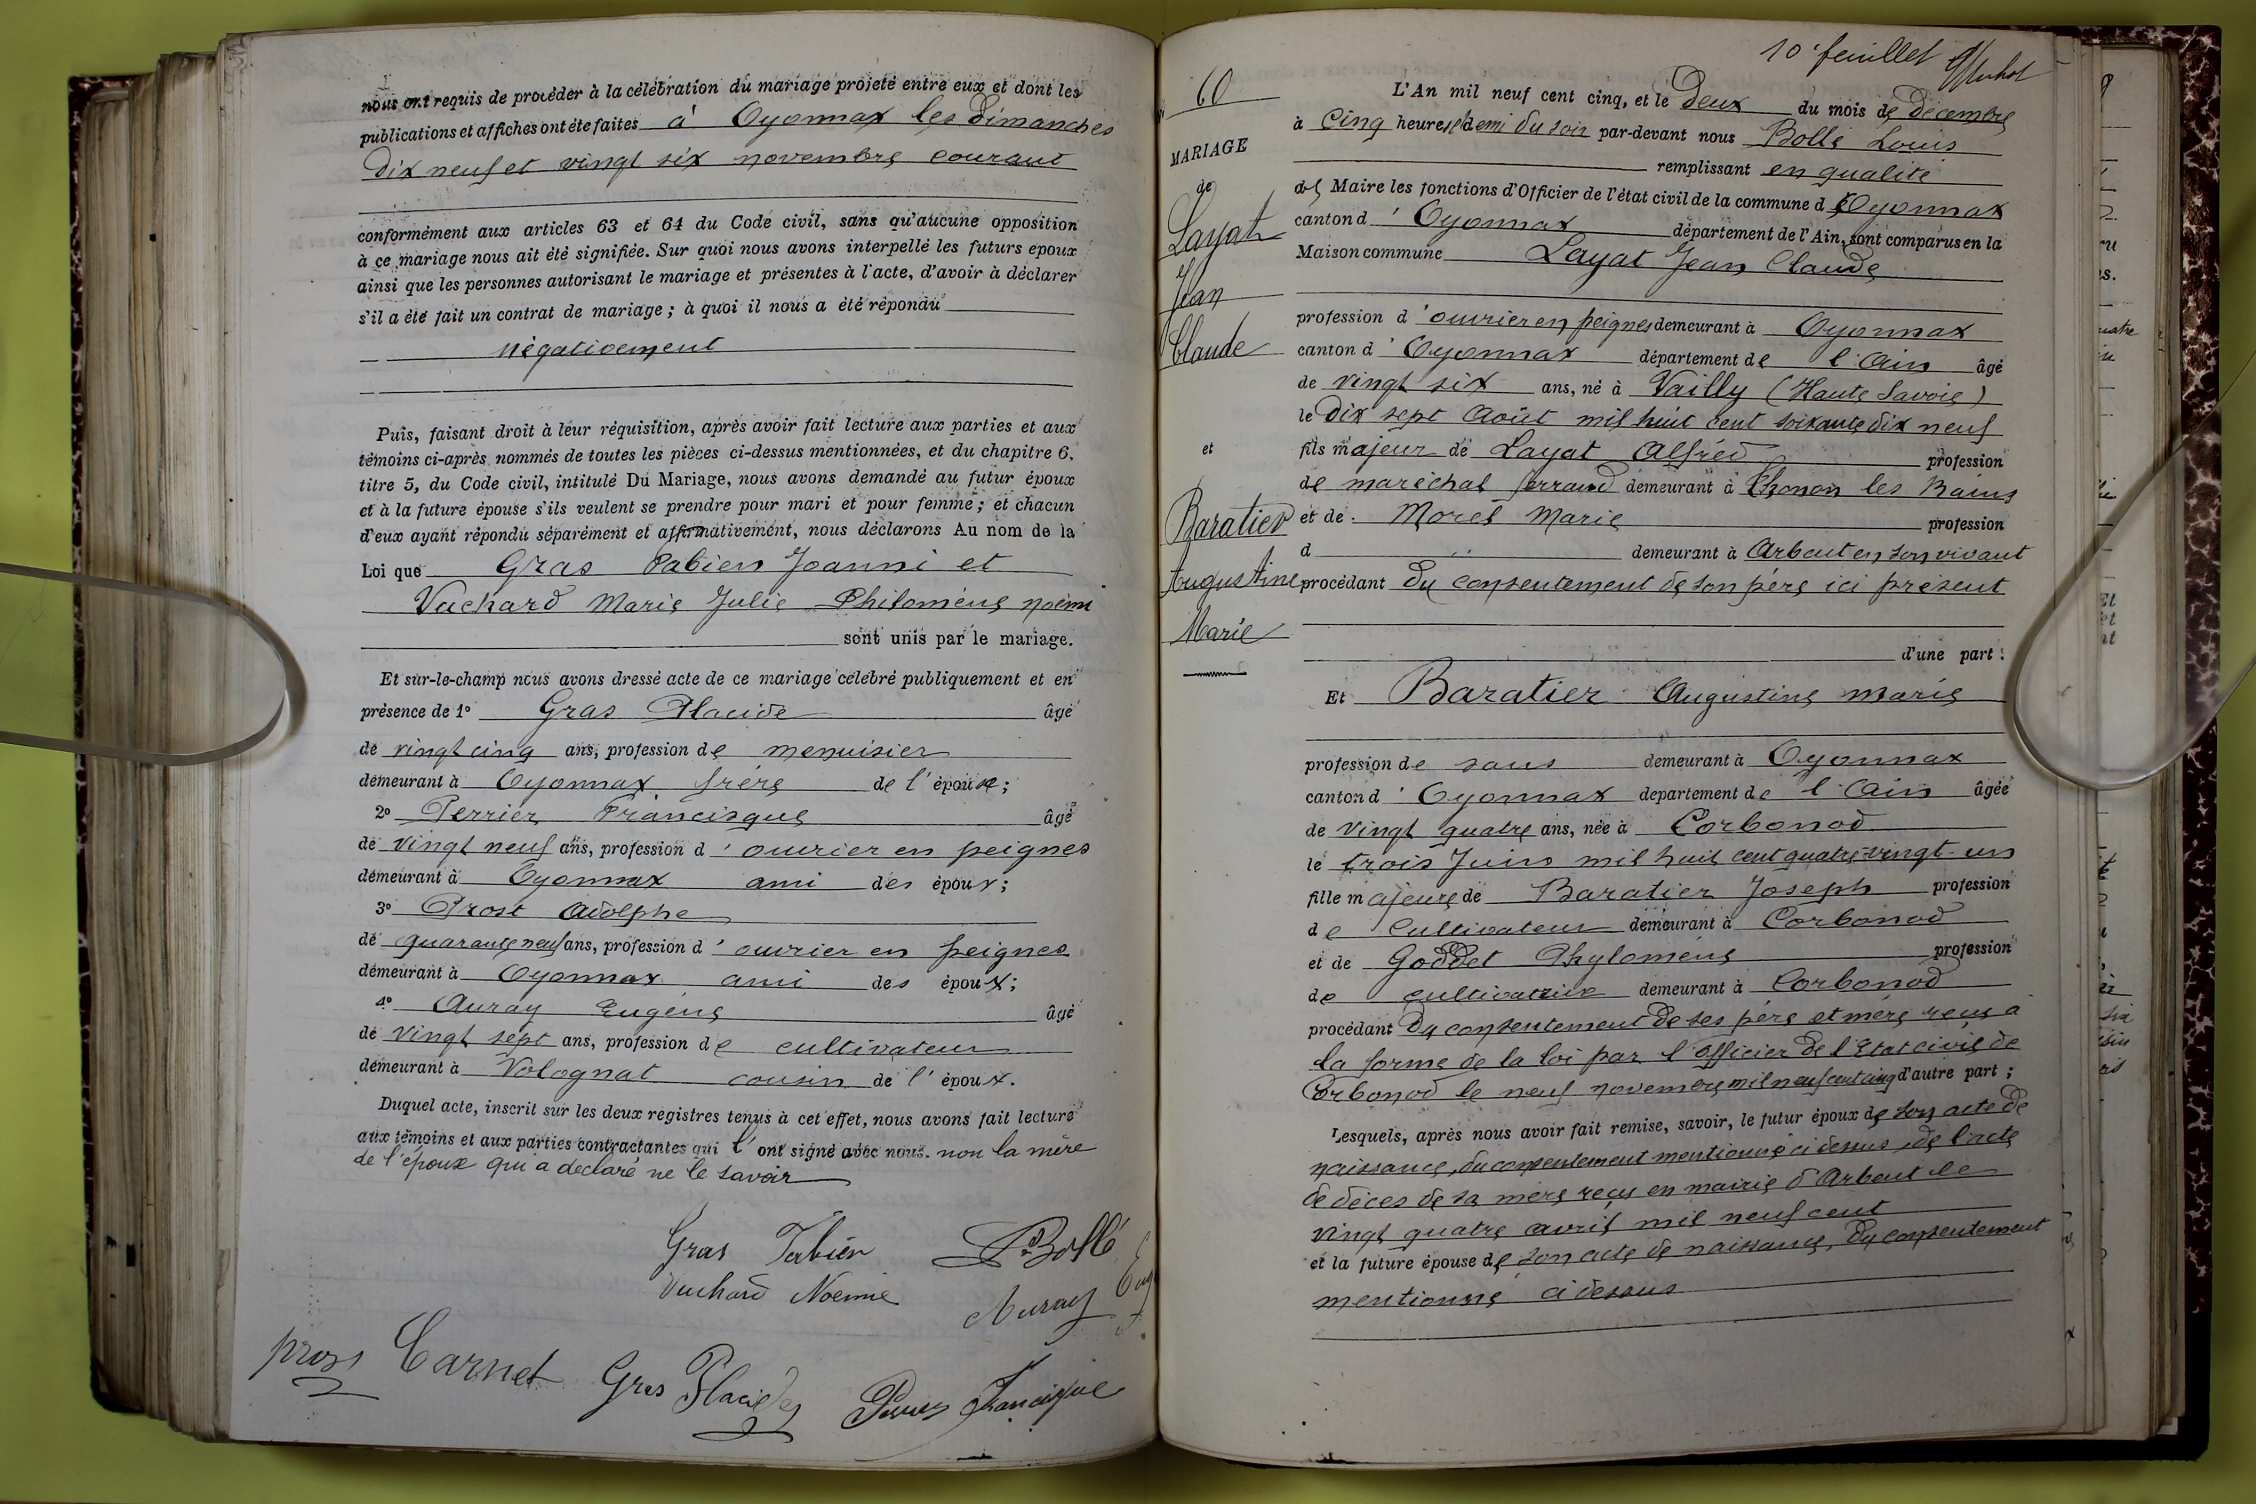 nous ont requis de procéder à la célébration du mariage projeté entre eux et dont les
publications et affiches ont été faites à Oyonnax les Dimanches
Dix neuf et vingt six novembre courant
conformément aux articles 63 et 64 du Code civil, sans qu'aucune opposition
à ce mariage nous ait été signifiée. Sur quoi nous avons interpellé les futurs époux
ainsi que les personnes autorisant le mariage et présentes à l'acte, d'avoir à déclarer
s'il a été fait un contrat de mariage ; à quoi il nous a été répondu
négativement
Puis, faisant droit à leur réquisition, après avoir fait lecture aux parties et aux
témoins ci-après nommés de toutes les pièces ci-dessus mentionnées, et du chapitre 6.
titre 5, du Code civil, intitulé Du Mariage, nous avons demandé au futur époux
et à la future épouse s'ils veulent se prendre pour mari et pour femme ; et chacun
d'eux ayant répondu séparément et affirmativement, nous déclarons Au nom de la
Loi que Gras Fabien Joanni et
Vuchard Marie Julie Philomène Noémi
sont unis par le mariage.
Et sur-le-champ nous avons dressé acte de ce mariage célébré publiquement et en
présence de 1° Gras Placide âgé
de vingt cinq ans, profession de menuisier
demeurant à Oyonnax frère de l'époux ;
2° Perrier Francisque âgé
de vingt neuf ans, profession d'ouvrier en peignes
demeurant à Oyonnax ami des époux ;
3° Prost Adolphe
de quarante neuf ans, profession d'ouvrier en peignes
demeurant à Oyonnax ami des époux ;
4° Auray Eugène âgé
de vingt sept ans, profession de cultivateur
demeurant à Volognat cousin de l'époux.
Duquel acte, inscrit sur les deux registres tenus à cet effet, nous avons fait lecture
aux témoins et aux parties contractantes qui l'ont signé avec nous. non la mère
de l'époux qui a déclaré ne le savoir
Gras Fabien Bollé
Vuchard Noémie Auray Eug
pross Carnet Gras Placide Perrier Francisque
10e feuillet
60
MARIAGE
de
Layat
Jean
Claude
et
Baratier
Augustine
Marie
L'An mil neuf cent cinq, et le Deux du mois de Décembre
à Cinq heures et demi du soir par-devant nous Bollé Louis
remplissant en qualité
de Maire les fonctions d'Officier de l'état civil de la commune d'Oyonnax
canton d'Oyonnax département de l'Ain, sont comparus en la
Maison commune Layat Jean Claude
profession d'ouvrier en peignes demeurant à Oyonnax
canton d'Oyonnax département de l'Ain âgé
de vingt six ans, né à Vailly (Haute Savoie)
le Dix sept Août mil huit cent soixante dix neuf
fils majeur de Layat Alfred profession
de maréchal ferrand demeurant à Thonon les Bains
et de Morel Marie profession
d demeurant à Arbent en son vivant
procédant du consentement de son père ici présent
d'une part :
Et Baratier Augustine Marie
profession de sans demeurant à Oyonnax
canton d'Oyonnax département de l'Ain âgée
de vingt quatre ans, née à Corbonod
le trois Juin mil huit cent quatre-vingt-un
fille majeure de Baratier Joseph profession
de Cultivateur demeurant à Corbonod
et de Goddet Phylomène profession
de cultivatrice demeurant à Corbonod
procédant du consentement de ses père et mère reçu à
la forme de la loi par l'officier de l'Etat civil de
Corbonod le neuf novembre mil neuf cent cinq d'autre part ;
Lesquels, après nous avoir fait remise, savoir, le futur époux de son acte de
naissance, du consentement mentionné ci dessus, de l'acte
de décès de sa mère reçu en mairie d'Arbent le
vingt quatre avril mil neuf cent
et la future épouse de son acte de naissance, du consentement
mentionné ci dessus